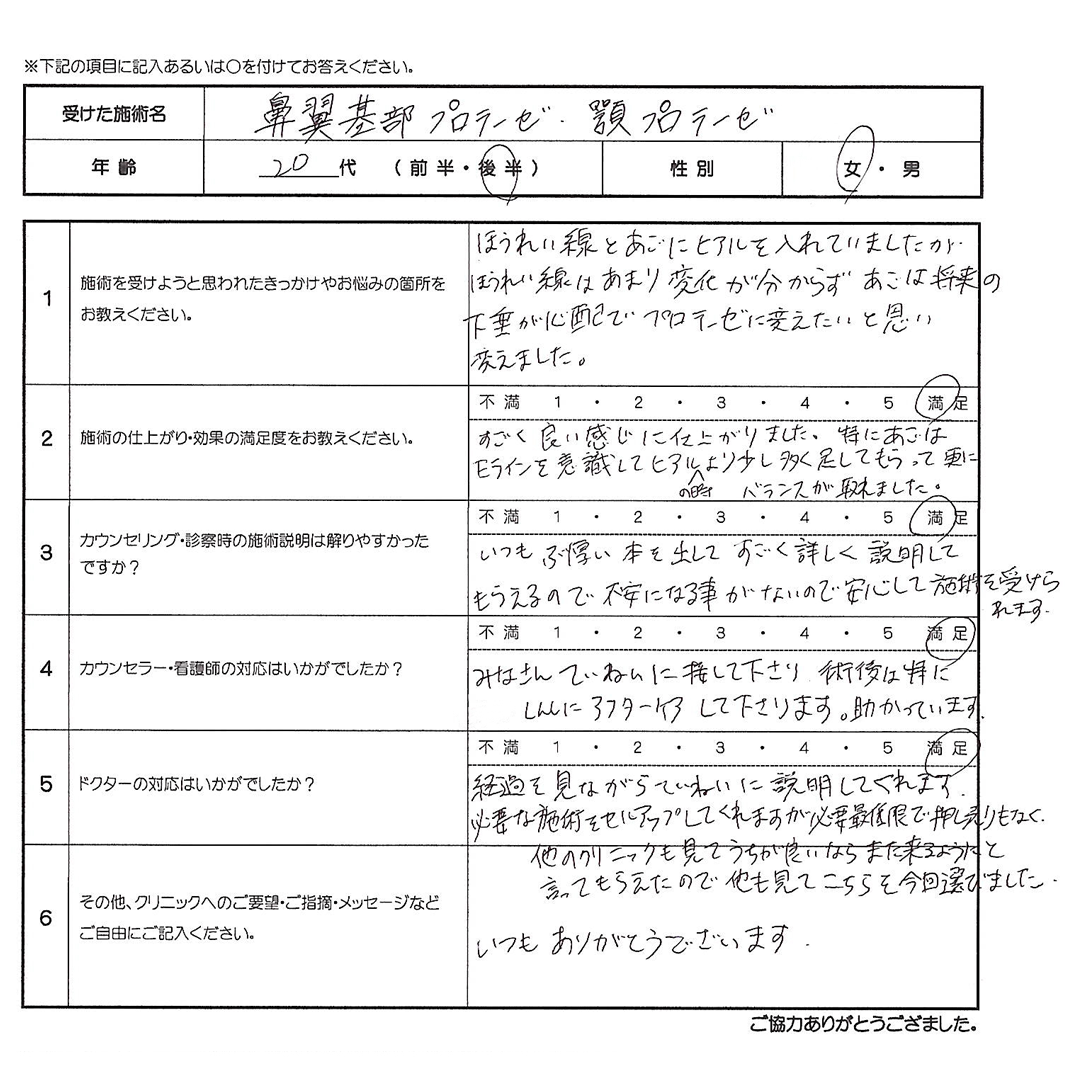 ※下記の項目に記入あるいは〇を付けてお答えください。
受けた施術名 鼻翼基部プロテーゼ・顎プロテーゼ
年齢 20代 (前半・後半) 性別 女・男
1 施術を受けようと思われたきっかけやお悩みの箇所を
お教えください。
ほうれい線とあごにヒアルを入れていましたが、
ほうれい線はあまり変化が分からず あごは将来の
下垂が心配でプロテーゼに変えたいと思い
変えました。
2 施術の仕上がり・効果の満足度をお教えください。
不満 1 ・ 2 ・ 3 ・ 4 ・ 5 満足
すごく良い感じに仕上がりました。特にあごは
Eラインを意識してヒアルより少し多く足してもらって更に
の時 バランスが取れました。
3 カウンセリング・診察時の施術説明は解りやすかった
ですか?
不満 1 ・ 2 ・ 3 ・ 4 ・ 5 満足
いつもぶ厚い本を出してすごく詳しく説明して
もらえるので不安になる事がないので安心して施術を受けら
れます.
4 カウンセラー・看護師の対応はいかがでしたか?
不満 1 ・ 2 ・ 3 ・ 4 ・ 5 満足
みなさんていねいに接して下さり 術後は特に
しんしんに アフターケアして下さります。助かっています.
5 ドクターの対応はいかがでしたか?
不満 1 ・ 2 ・ 3 ・ 4 ・ 5 満足
経過を見ながらていねいに説明してくれます.
必要な施術をセルアップしてくれますが必要最低限で押し売りもなく.
他のクリニックも見てうちが良いならまた来るようにと
言ってもらえたので他も見てこちらを今回選びました.
6 その他、クリニックへのご要望・ご指摘・メッセージなど
ご自由にご記入ください。
いつもありがとうございます.
ご協力ありがとうござました。